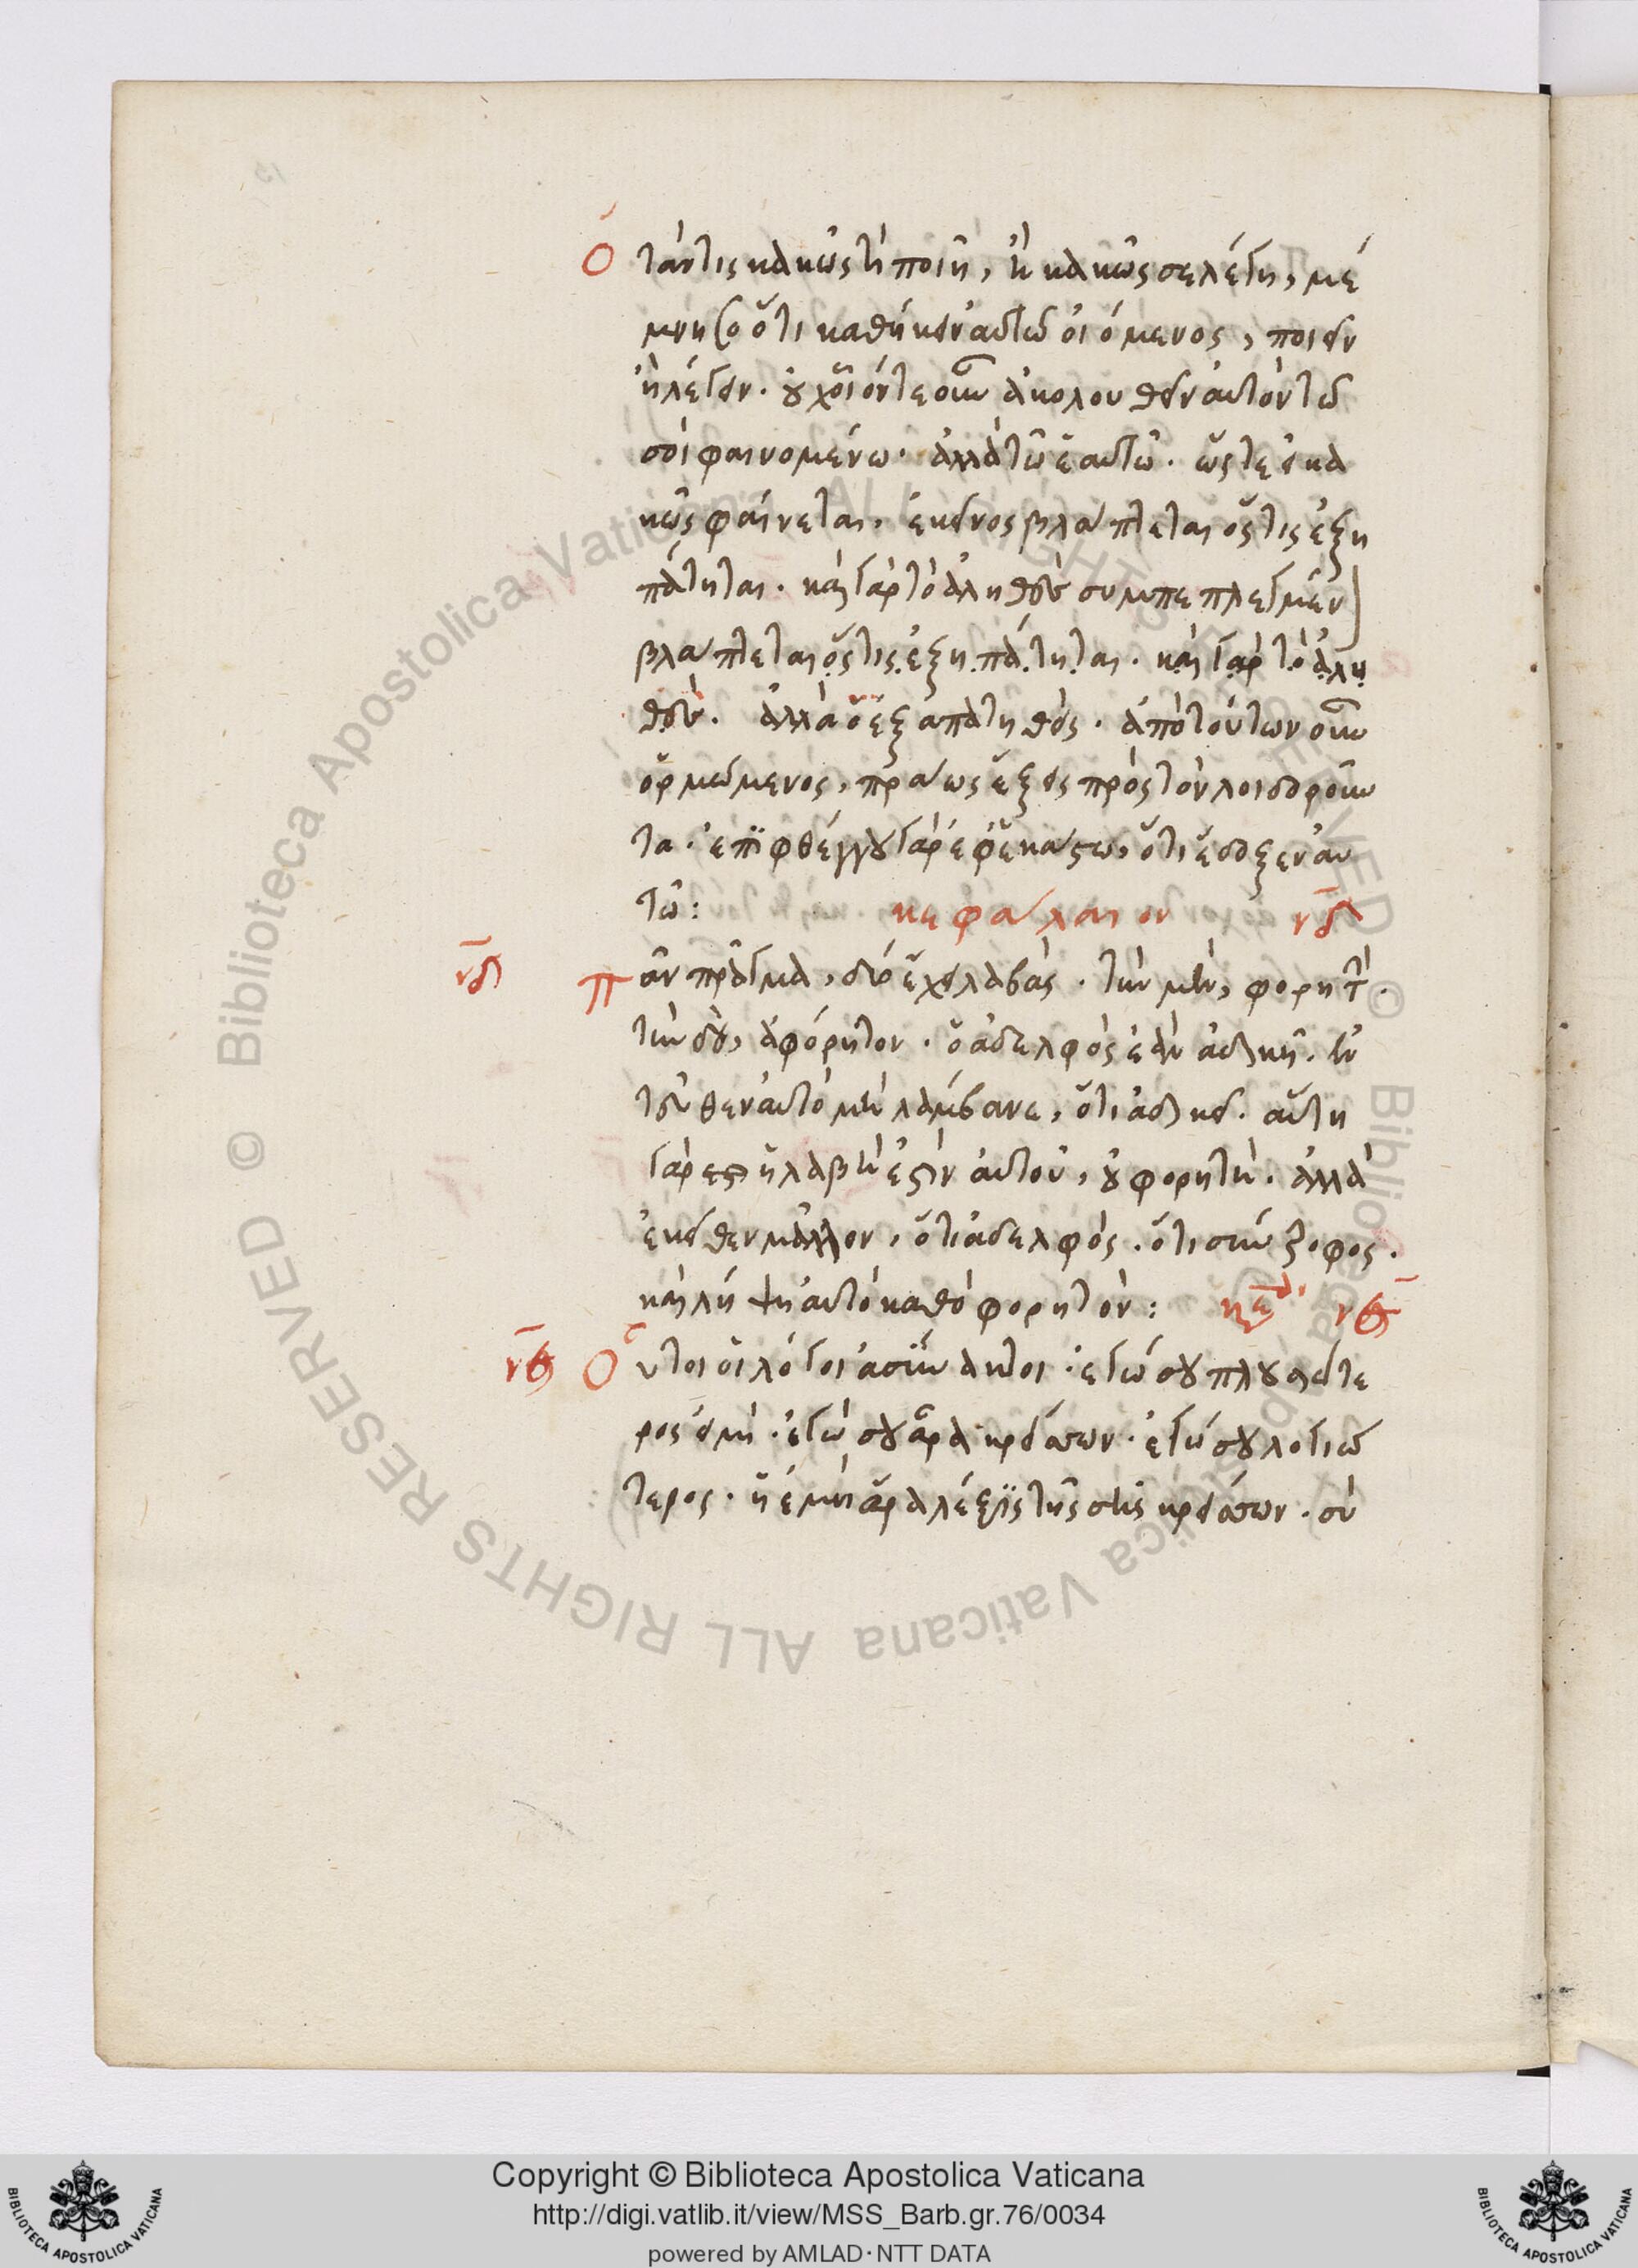 Ὅταν τις κακῶς τι ποιῆ, ἢ κακῶς σε λέγη, μέ
μνησο ὅτι καθήκειν αὐτῶ οἰόμενος, ποιεῖν
ἢ λέγειν. οὐχ οἷόν τε οὖν ἀκολουθεῖν αὐτὸν τῶ
σοὶ φαινομένω. ἀλλὰ τῶ ἑαυτῶ. ὥστε εἰ κα
κῶς φαίνεται, ἐκεῖνος βλάπτεται ὅστις ἐξη
πάτηται. καὶ γὰρ τὸ ἀληθὲς συμπεπλεγμέν
βλάπτεται ὅστις ἐξηπάτηται. καὶ γὰρ τὸ ἀλη
θὲς. ἀλλὰ ὁ ἐξαπατηθείς. ἀπὸ τούτων οὖν
ὁρμώμενος, πράως ἕξεις πρὸς τὸν λοιδοροῦν
τα. ἐπιφθέγγου γὰρ ἐφ' ἑκάστω, ὅτι ἔδοξεν αὐ
τῶ: κεφάλαιον νδ
νδ Πᾶν πρᾶγμα, δύο ἔχει λαβάς. τὴν μὲν, φορητ.
τὴν δὲ, ἀφόρητον. ὁ ἀδελφὸς ἐὰν ἀδικῆ. ἐν
τεῦθεν αὐτὸ μὴ λάμβανε, ὅτι ἀδικεῖ. αὕτη
γὰρ ἐστ ἡ λαβὴ ἐστὶν αὐτοῦ, οὐ φορητὴ. ἀλλὰ
ἐκεῖθεν μᾶλλον, ὅτι ἀδελφὸς. ὅτι σύντροφος.
καὶ λήψη αὐτὸ καθὸ φορητὸν: κε νε
νε Οὗτοι οἱ λόγοι ἀσύνακτοι. ἐγώ σου πλουσιώτε
ρος εἰμὶ. ἐγώ σου ἄρα κρείσσων. ἐγώ σου λογιώ
τερος. ἡ ἐμὴ ἄρα λέξις τῆς σῆς κρείσσων. σὺ
Copyright © Biblioteca Apostolica Vaticana
http://digi.vatlib.it/view/MSS_Barb.gr.76/0034
powered by AMLAD·NTT DATA
BIBLIOTECA APOSTOLICA VATICANA
BIBLIOTECA APOSTOLICA VATICANA